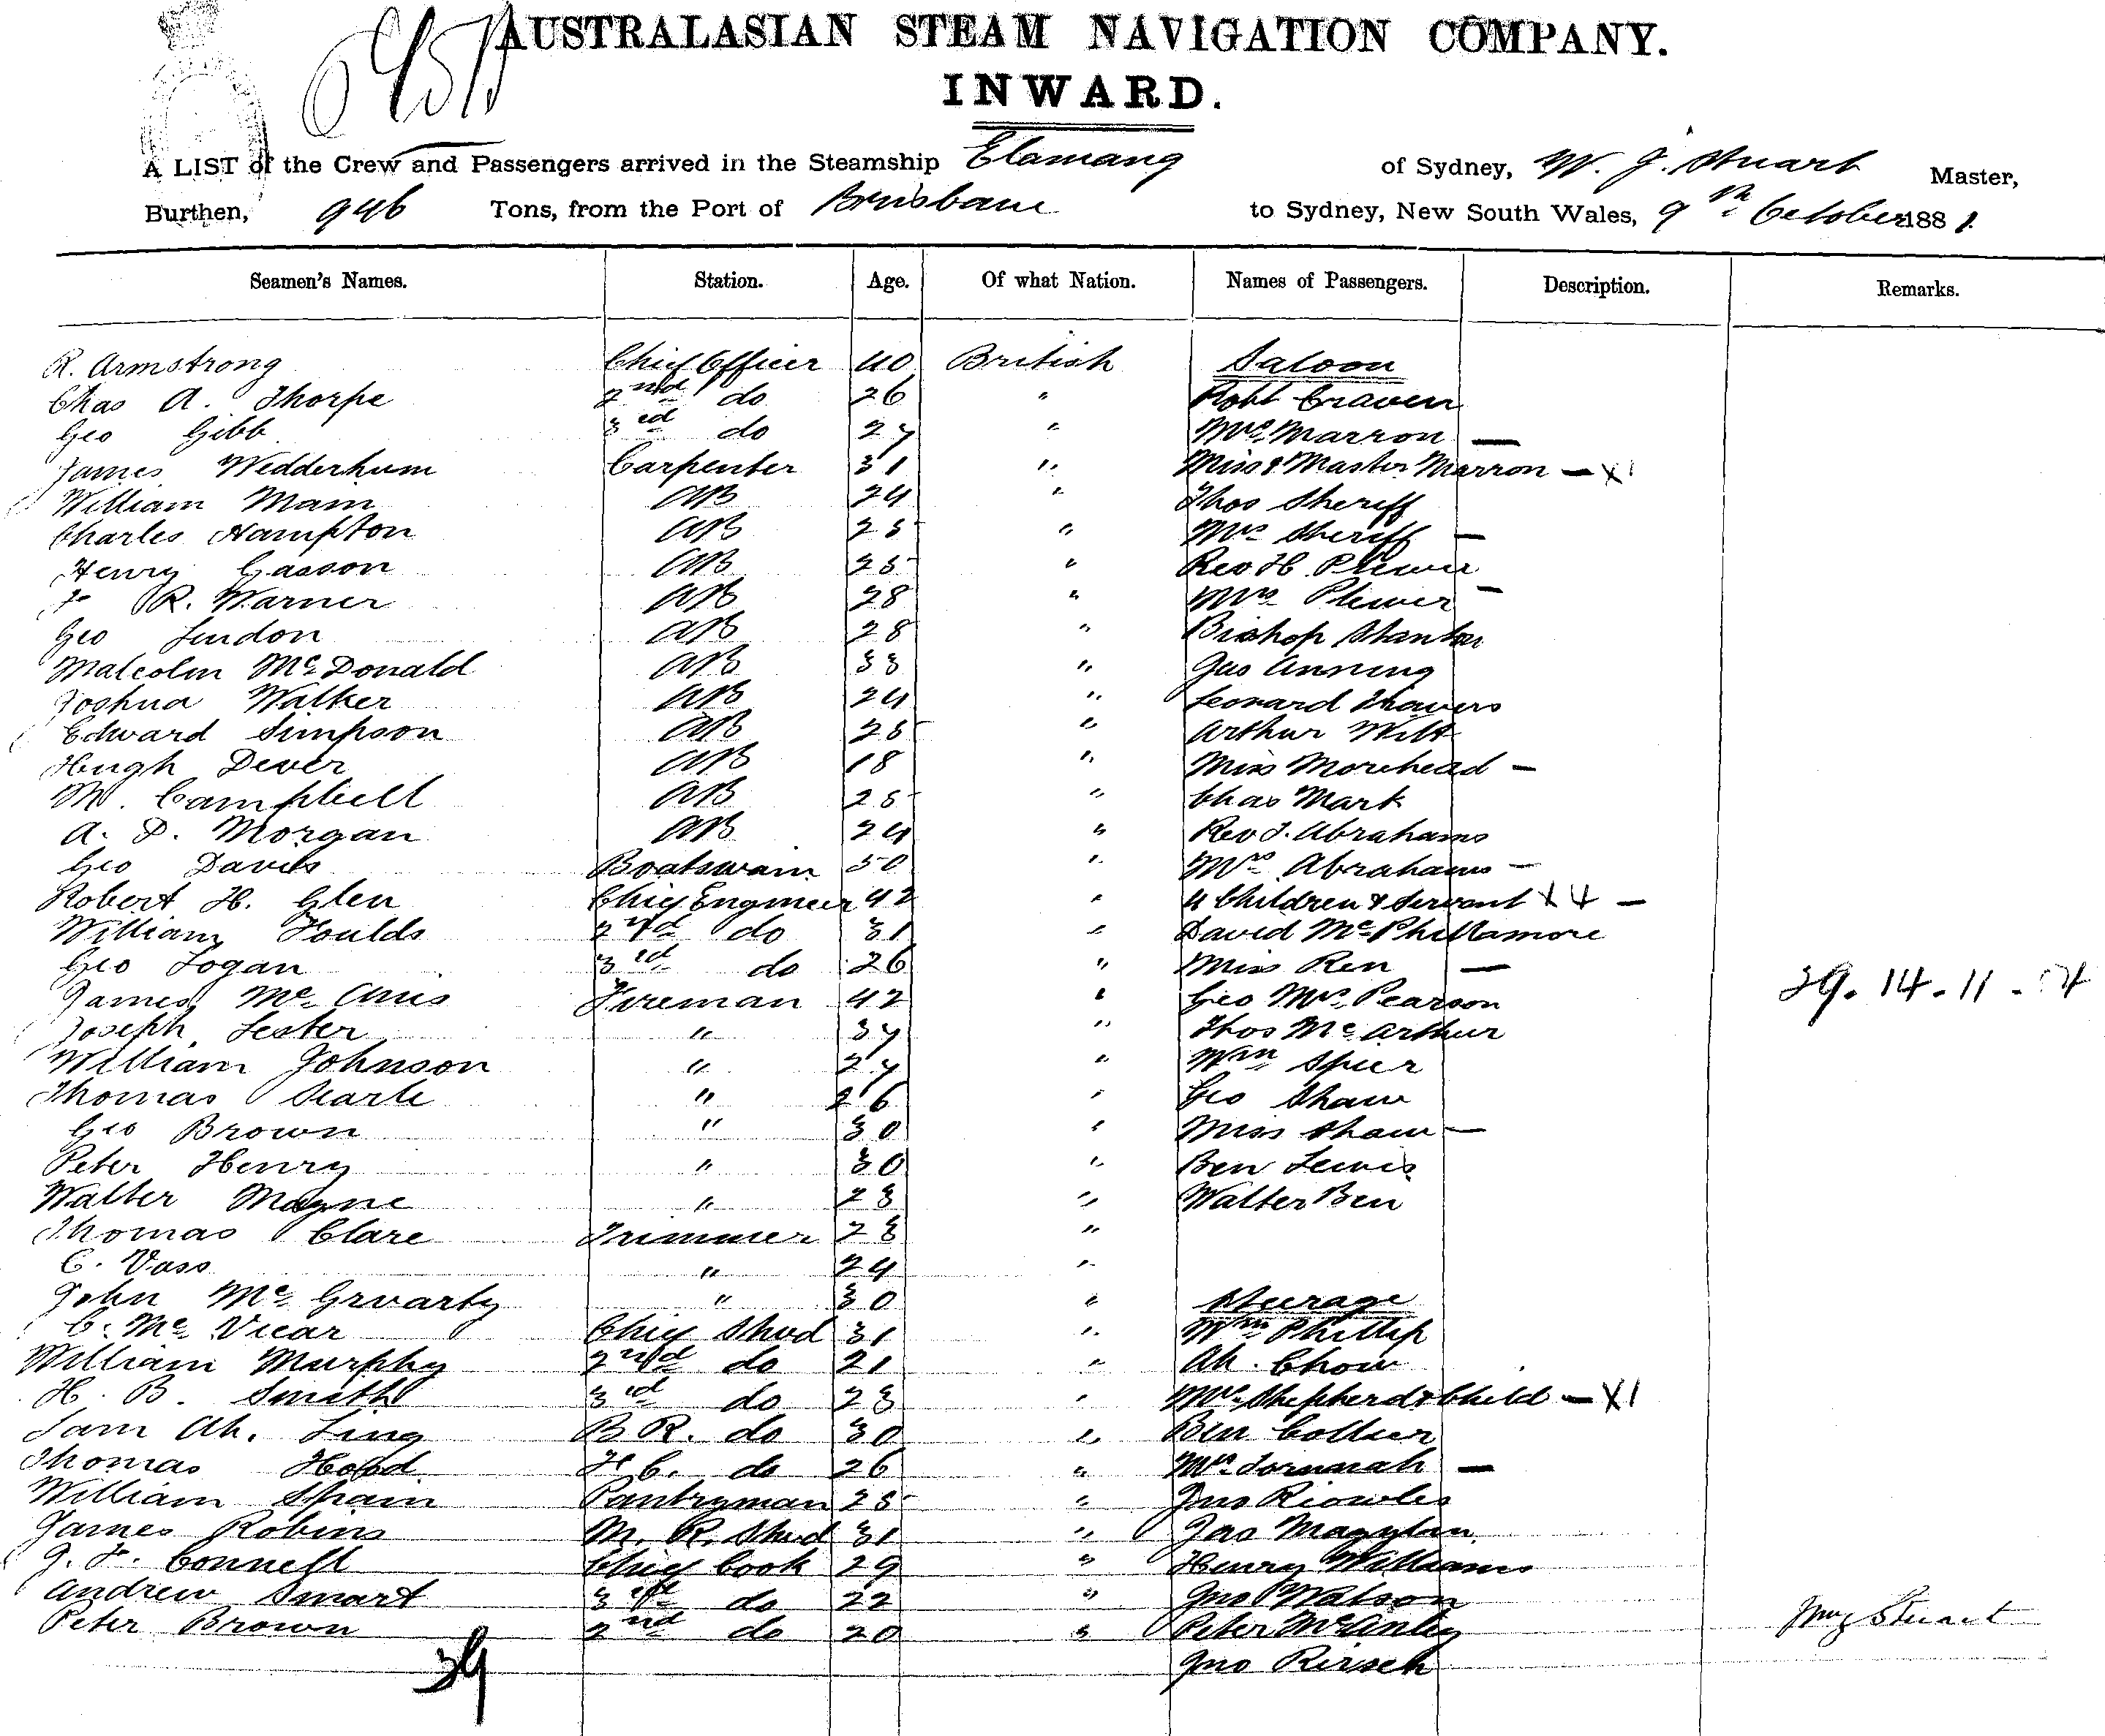 AUSTRALASIAN STEAM NAVIGATION COMPANY.
INWARD.
A LIST of the Crew and Passengers arrived in the Steamship Elamang of Sydney, W. J. Stuart Master,
Burthen, 946 Tons, from the Port of Brisbane to Sydney, New South Wales, 9th October 1881.
Seamen's Names. Station. Age. Of what Nation. Names of Passengers. Description. Remarks.
R. Armstrong Chief Officer 40 British Saloon
Chas A. Thorpe 2nd do 26 " Robt Craven
Geo Gibb 3rd do 27 " Mrs Marron —
James Wedderhum Carpenter 31 " Miss & Master Marron — X1
William Mam AB 24 " Thos Sheriff
Charles Hampton AB 25 " Mrs Sheriff —
Henry Gasson AB 25 " Rev H. Plewer
F R. Warner AB 28 " Mrs Plewer —
Geo Lindon AB 28 " Bishop Stanton
Malcolm McDonald AB 33 " Jas Anning
Joshua Walker AB 24 " Leonard Travers
Edward Simpson AB 25 " Arthur Wilt
Hugh Dever AB 18 " Miss Morehead —
M. Campbell AB 25 " Chas Mark
A. D. Morgan AB 24 " Rev J. Abrahams
Geo Davis Boatswain 50 " Mrs Abrahams —
Robert H. Glen Chief Engineer 42 " 4 Children & Servant X 4 —
William Foulds 2nd do 31 " David McPhillamore
Geo Logan 3rd do 26 " Miss Ren —
James Mc Fireman 42 " Geo Pearson 29. 14. 11.
Joseph Lester " 37 " Thos McArthur
William Johnson " 27 " Wm Spier
Thomas Searle " 26 " Geo Shaw
Geo Brown " 30 " Miss Shaw —
Peter Henry " 30 " Ben Lewis
Walter Mayne " 23 " Walter Ben
Thomas Clare Trimmer 23 "
C. Vass " 24 "
John McGruarty " 30 " Steerage
C. McVicar Chief Stwd 31 " Wm Phillip
William Murphy 2nd do 21 " Ah. Chow
H. B. Smith 3rd do 23 " Mrs Shepherd & Child — X1
Sam Ah. Ling B R. do 30 " Ben Collier
Thomas Hood F. C. do 26 " Mrs —
William Spain Pantryman 25 " Jno
James Robins M. R. Stwd 31 " Jas
J. F. Connell Chief Cook 29 " Henry Williams
Andrew Smart 3rd do 22 " Jno Watson
Peter Brown 2nd do 20 " Peter McAnley Stuart
39 Jno Kirsch